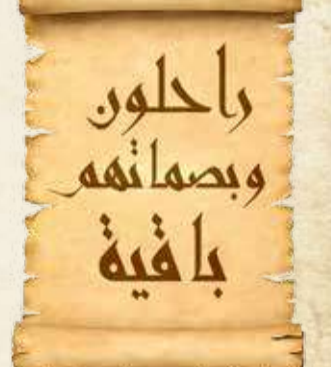 راحلون
وبصماتهم
باقية